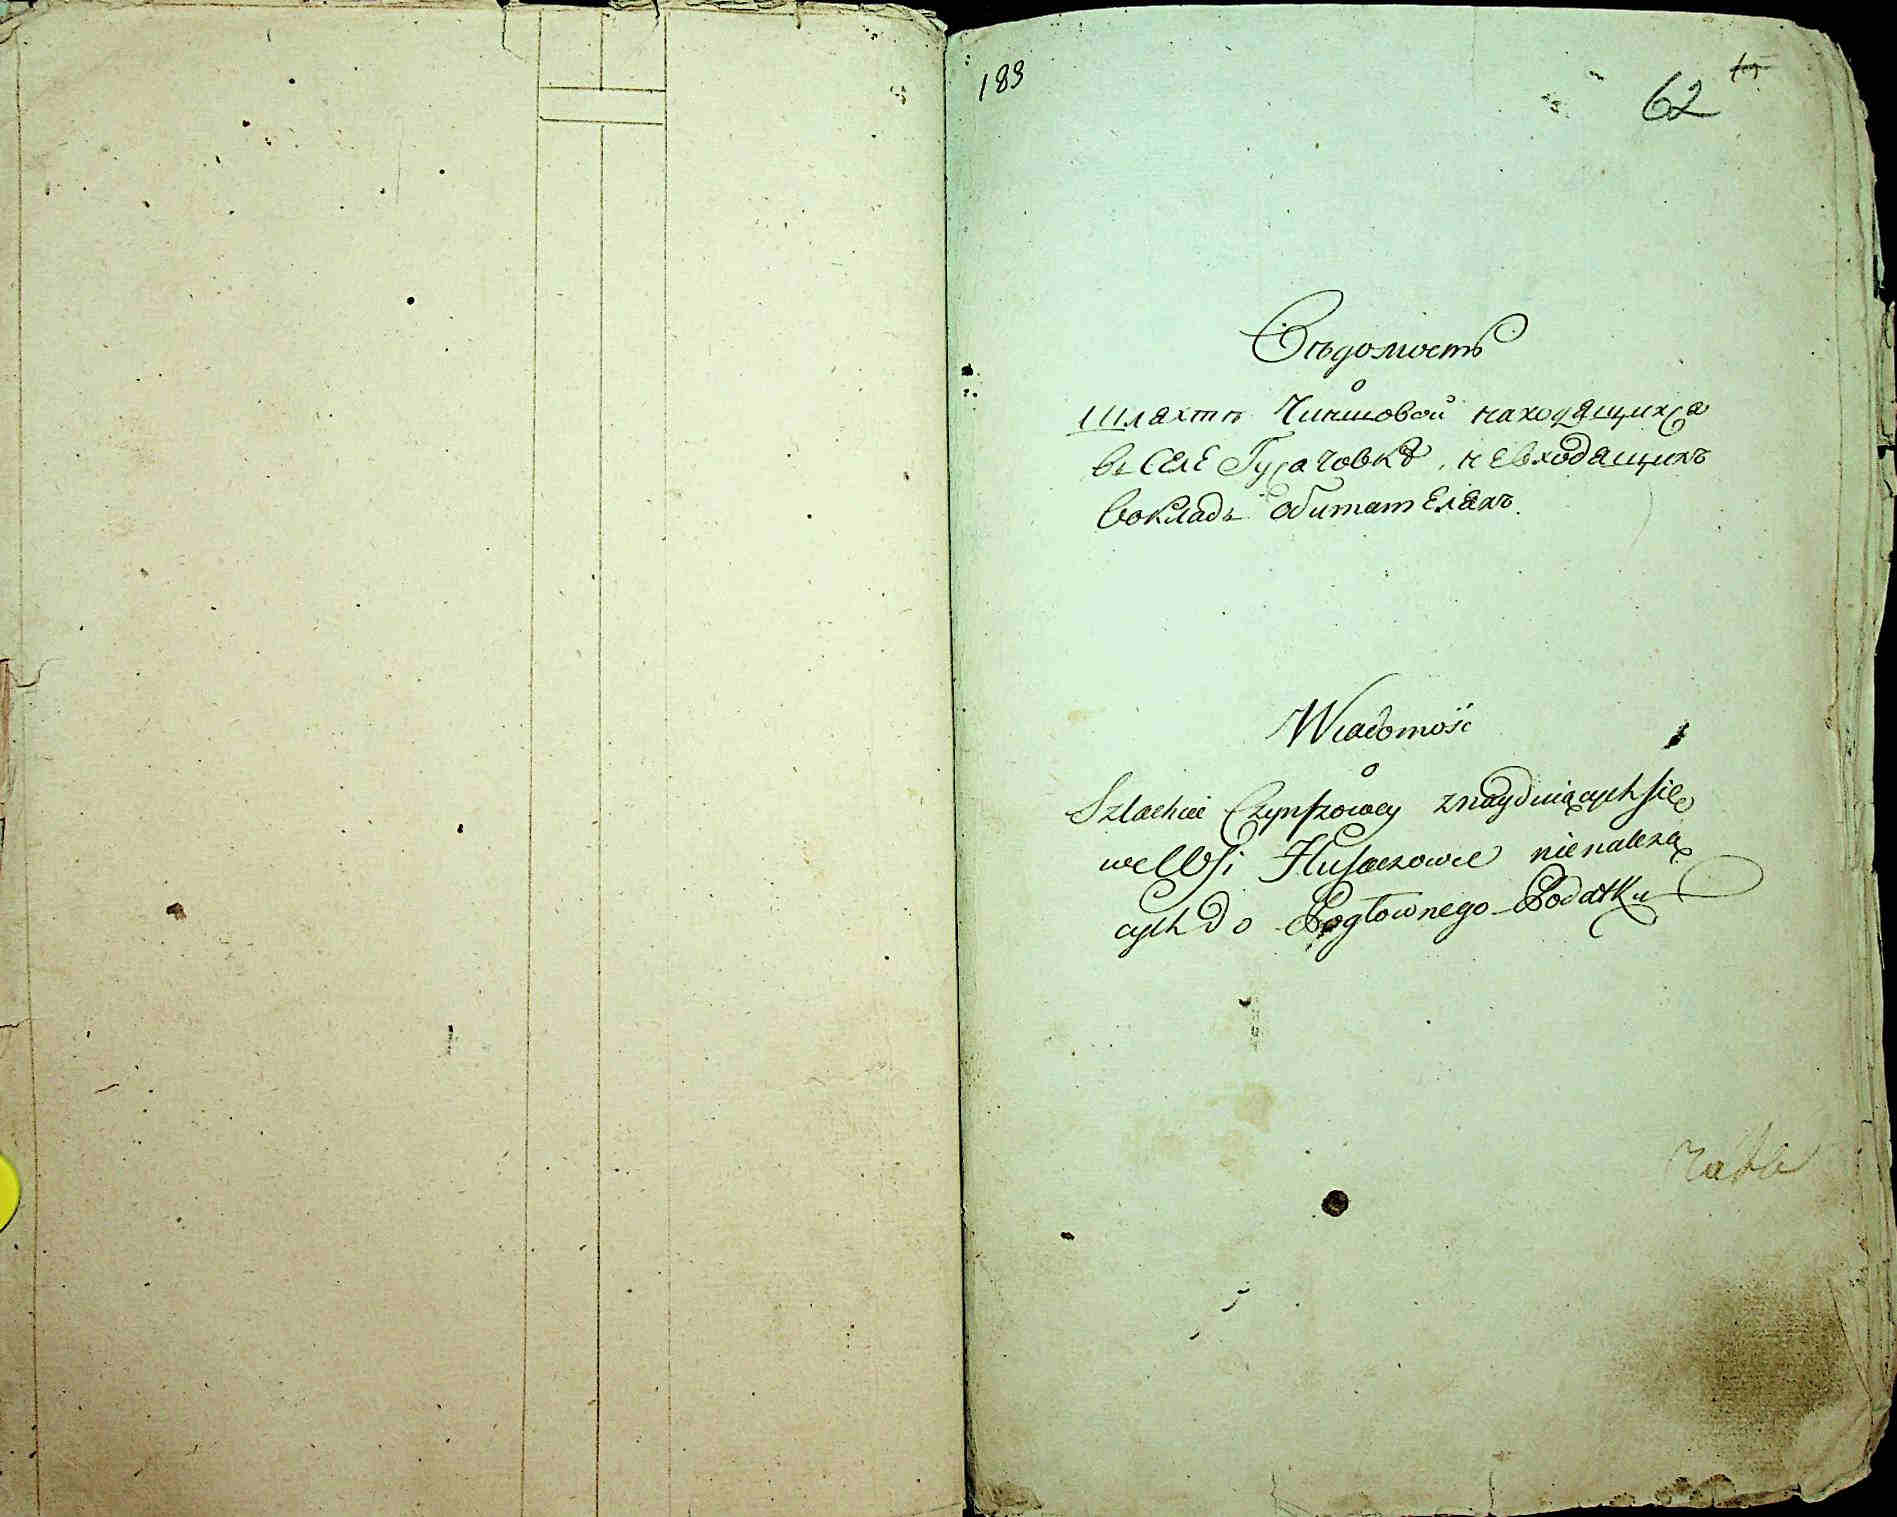 183
62
Вѣдомость
о
Шляхтѣ Чиншовой находящихся
въ селе Гусачовкѣ, невходящихъ
вокладъ обитателяхъ.
Wiadomość
o
Szlachcie Czynszowey znayduiących się
we Wsi Husaczowce nienależą
cych do Pogłownego Podatku